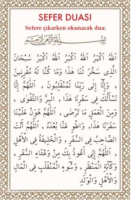 SEFER DUASI
Sefere çıkarken okunacak dua:
اَللّٰهُ اَكْبَرُ اَللّٰهُ اَكْبَرُ اَللّٰهُ اَكْبَرُ سُبْحَانَ
الَّذِي سَخَّرَ لَنَا هٰذَا وَمَا كُنَّا لَهُ مُقْرِنِينَ
وَاِنَّا اِلٰى رَبِّنَا لَمُنْقَلِبُونَ ، اَللّٰهُمَّ اِنَّا
نَسْأَلُكَ فِي سَفَرِنَا هٰذَا ، الْبِرَّ وَالتَّقْوٰى ،
وَمِنَ الْعَمَلِ مَا تَرْضٰى ، اَللّٰهُمَّ هَوِّنْ عَلَيْنَا
سَفَرَنَا هٰذَا ، وَاطْوِ عَنَّا بُعْدَهُ ، اَللّٰهُمَّ اَنْتَ
الصَّاحِبُ فِي السَّفَرِ ، وَالْخَلِيفَةُ فِي الْاَهْلِ
اَللّٰهُمَّ اِنِّي اَعُوذُ بِكَ مِنْ وَعْثَاءِ السَّفَرِ ،
وَكَآبَةِ الْمَنْظَرِ وَسُوءِ الْمُنْقَلَبِ فِي الْمَالِ
وَالْاَهْلِ وَالْوَلَدِ